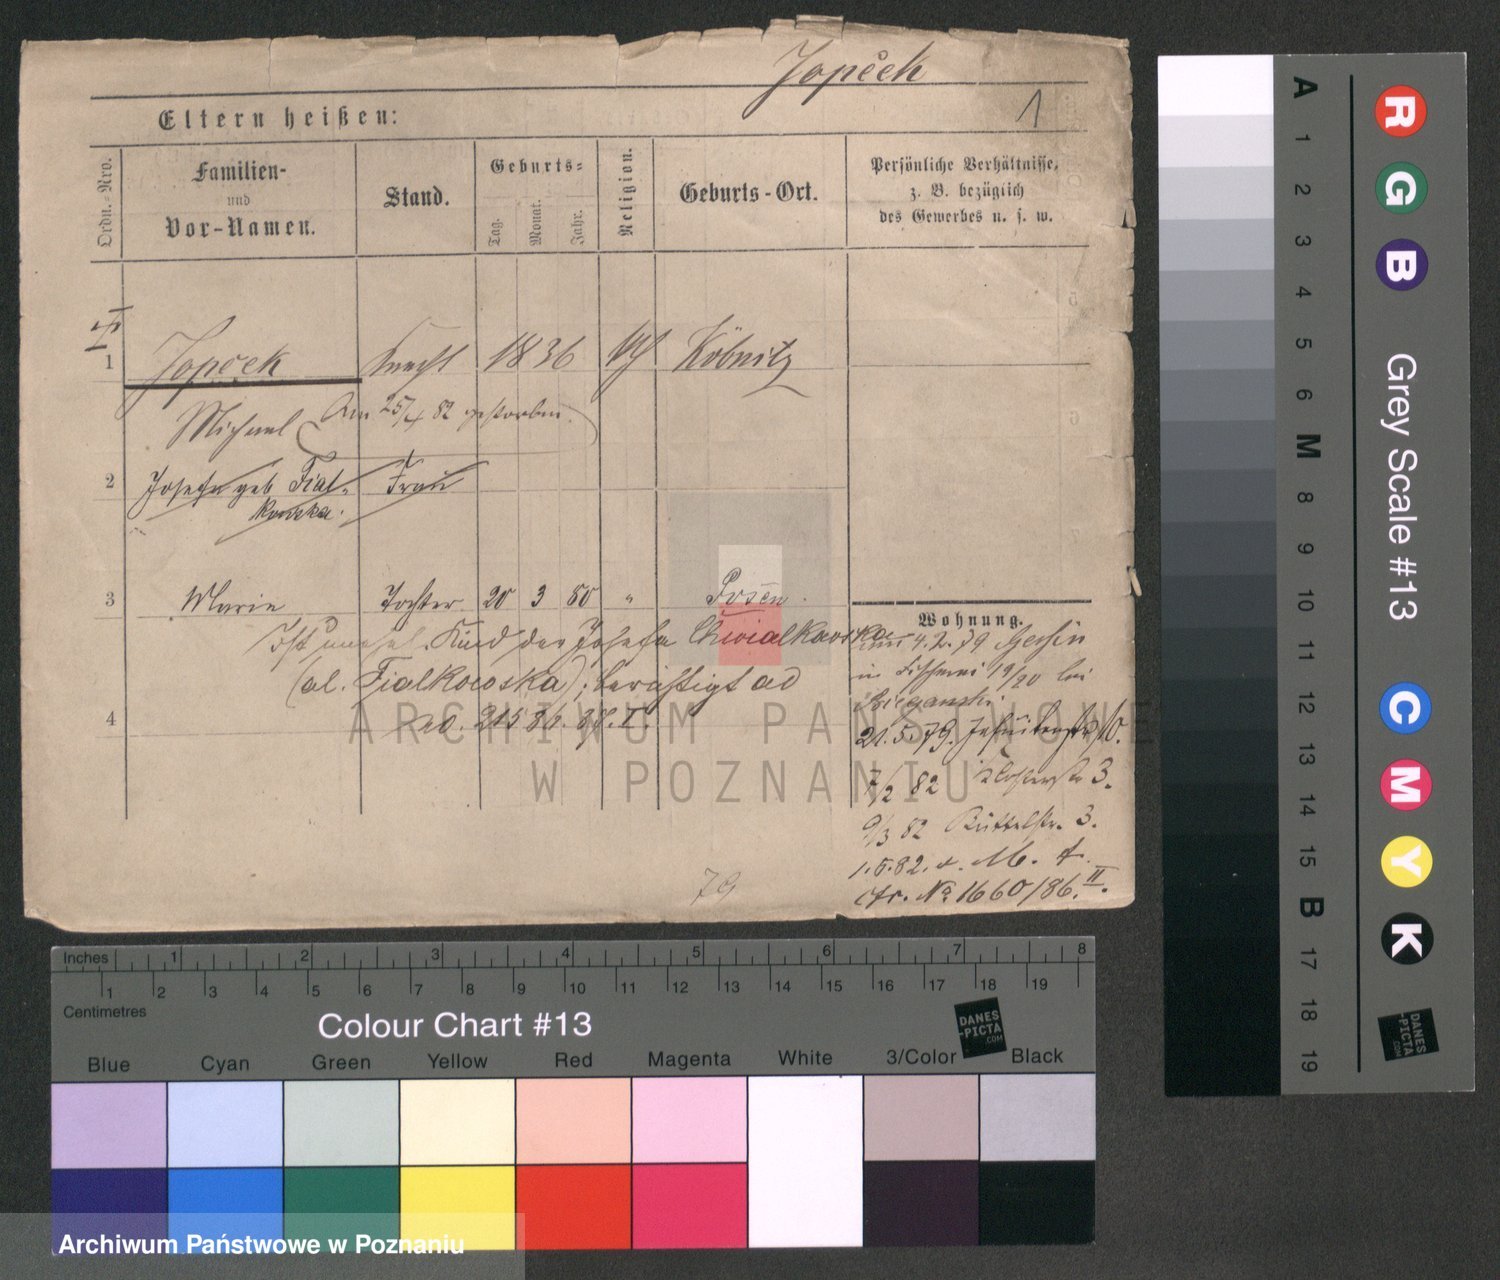 Jopček
1
Eltern heißen:
Ordn.-Nro.
Familien-
und
Vor-Namen.
Stand.
Geburts-
Tag.
Monat.
Jahr.
Religion.
Geburts-Ort.
Persönliche Verhältnisse,
z. B. bezüglich
des Gewerbes u. s. w.
1
Jopček Knecht 1836 Köbnitz
Michael Am 25/4 82 gestorben.
2
Josefa geb. Fial-
kowska.
Frau
3
Marie Tochter 20 3 80 " Posen.
Ist unehel. Kind der Josefa Chwialkowska
(al. Fialkowska); berichtigt ad
ad. 215 86. I.
4
Wohnung.
4.2.79
in Fischerei 19/20 bei
Bieganski
21.5.79. Jesuitenstr. 10.
7/2 82 Klosterstr 3.
9/3 82 Büttelstr. 3.
1.5.82. v. M. A.
cfr. No 1660/86. II.
79
ARCHIWUM PAŃSTWOWE
W POZNANIU
Inches 1 2 3 4 5 6 7 8
1 2 3 4 5 6 7 8 9 10 11 12 13 14 15 16 17 18 19
Centimetres
Colour Chart #13
DANES
-PICTA
.COM
Blue Cyan Green Yellow Red Magenta White 3/Color Black
R G B Grey Scale #13 C M Y K
A 1 2 3 4 5 6 M 8 9 10 11 12 13 14 15 B 17 18 19
DANES
-PICTA
.COM
Archiwum Państwowe w Poznaniu